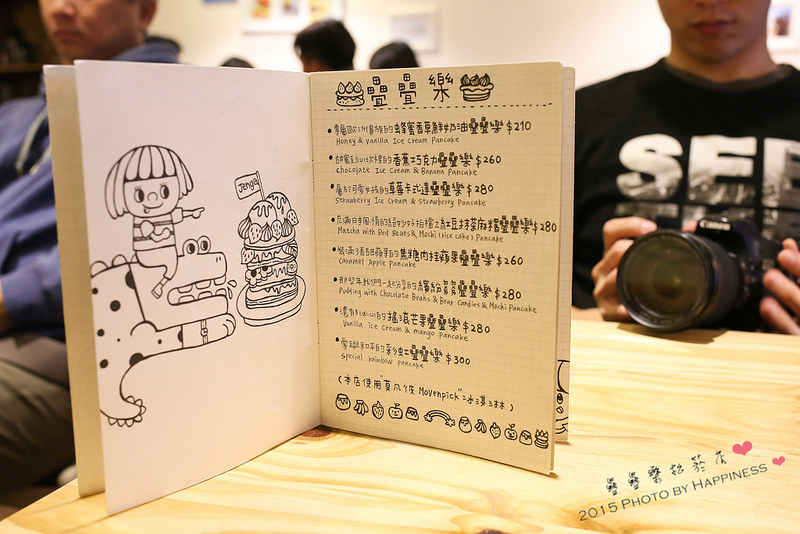 Jenga
疊疊樂
蜂蜜香草鮮奶油疊疊樂 $210
Honey & Vanilla Ice Cream Pancake
香蕉巧克力疊疊樂 $260
Chocolate Ice Cream & Banana Pancake
草莓卡式達疊疊樂 $280
Strawberry Ice Cream & Strawberry Pancake
紅豆抹茶麻糬疊疊樂 $280
Matcha with Red Beans & Mochi (rice cake) Pancake
焦糖肉桂蘋果疊疊樂 $260
Caramel Apple Pancake
那些年我們一起分享的繽紛 疊疊樂 $280
Pudding with Chocolate Beans & Bear Candies & Mochi Pancake
搖滾芒果疊疊樂 $280
Vanilla ice cream & mango pancake
愛與和平的彩虹疊疊樂 $300
Special rainbow pancake
(本店使用"莫凡彼 Movenpick"冰淇淋)
SEE
Canon
疊疊樂菘菸店
2015 Photo by Happiness